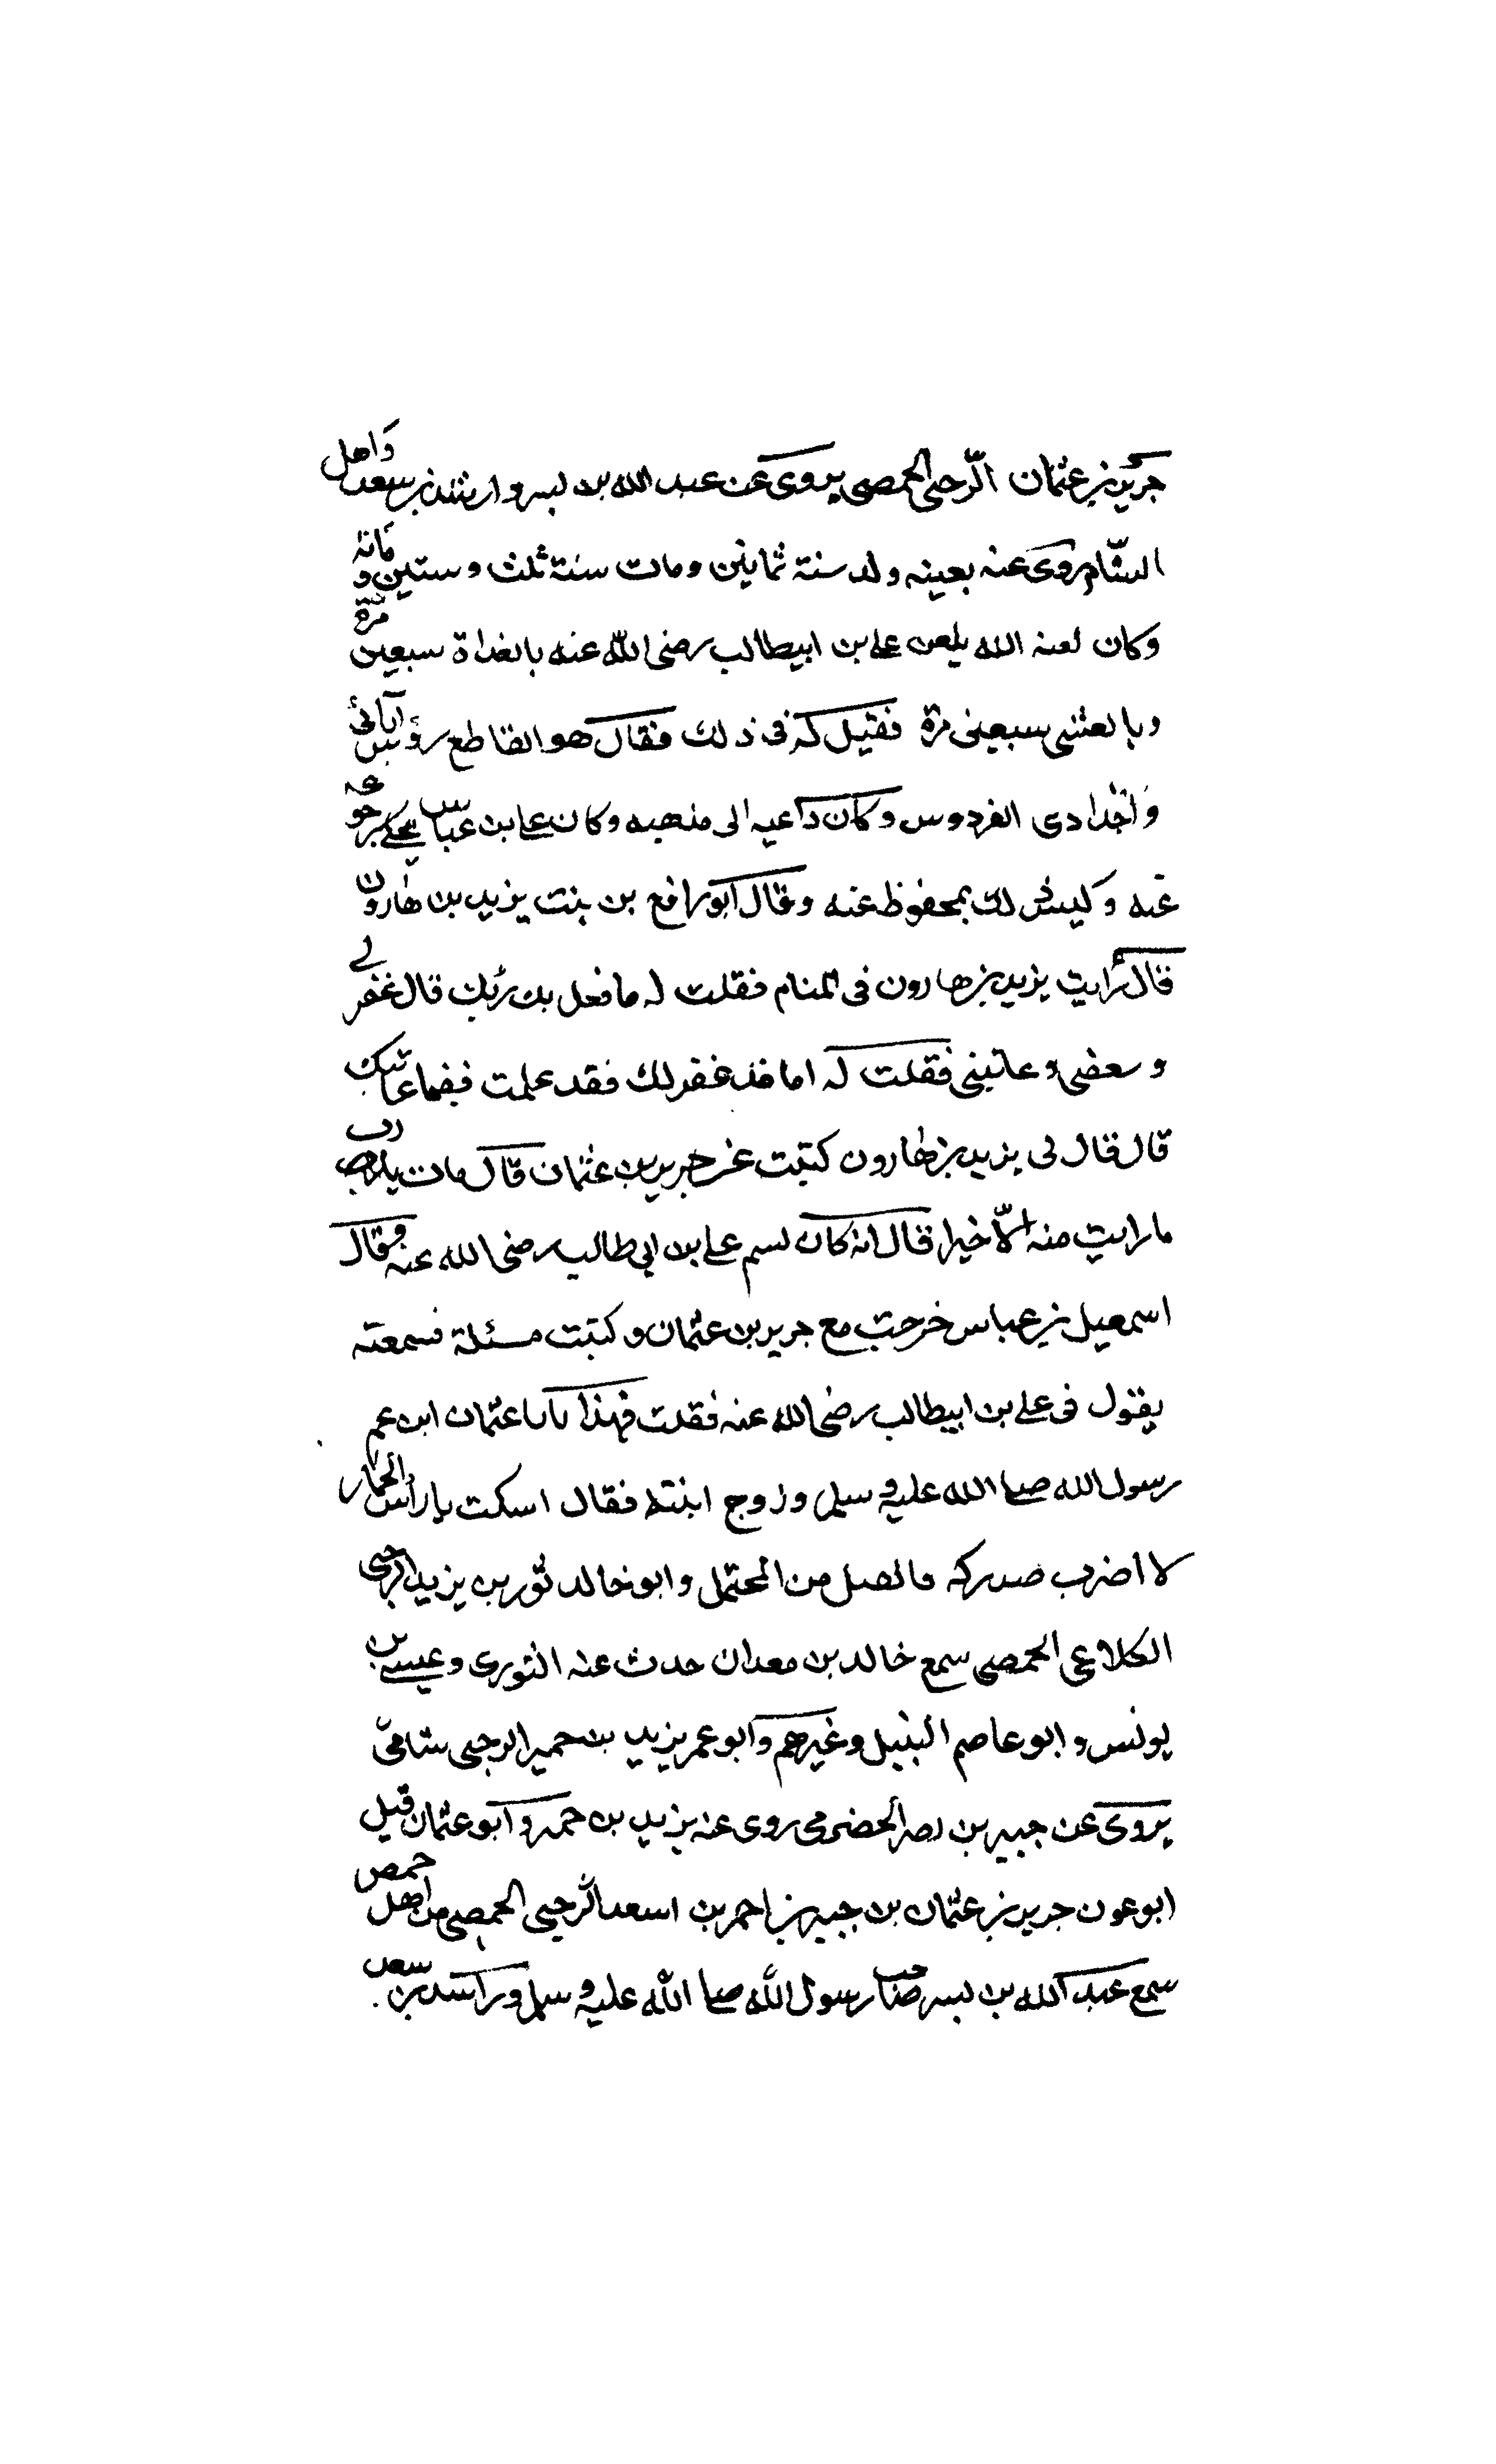 جرير بن عثمان الرّحبي الحمصي يروى عن عبد الله بن بسر وارشد بن سعد واهل
الشّام روى عنه بعينه ولد سنة ثمانين ومات سنة ثلث وستين ومائة
وكان لعنه الله يلعن على بن ابيطالب رضى اللّه عنه بالغداة سبعين مرّة
وبالعشى سبعين مرة فقيل له فى ذلك فقال هو القاطع رؤس آبائى
واجدادى الفردوس وكان داعيه الى مذهبه وكان على بن عباس يحكى رجوعه
عنه وليس ذلك بمحفوظ عنه وقال ابو رافع بن بنت يزيد بن هارون
قال رأيت يزيد بن هارون فى المنام فقلت له ما فعل بك ربك قال غفر لى
و وعاتبنى فقلت له اما قد غفر لك فقد علمت ففيما عاتبك
قال قال لى يزيد بن هارون كتبت عن جرير بن عثمان قال مات يارب
ما رايت منه الّا خيرا قال انه كان لسم على بن ابي طالب رضى الله عنه وقال
اسمعيل بن عباس خرجت مع جرير بن عثمان وكتبت مسئلة فسمعته
يقول فى على بن ابيطالب رضى الله عنه فقلت فهذا يابا عثمان ابن عم
رسول الله صلى الله عليه وسلم وزوج ابنته فقال اسكت ياراس الحمار
لا اضرب صدرك من المحتمل وابو خالد ثور بن يزيد الرحبى
الكلاعى الحمصى سمع خالد بن معدان حدث عنه الثورى وعيسى بن
يونس وابو عاصم النبيل وغيرهم وابو عمر يزيد بن حمير الرحبى شامىّ
يروى عن جبير بن الحضرمى روى عنه يزيد بن حمر وابو عثمان قيل
ابو عون جرير بن عثمان بن جبير بن احمر بن اسعد الرحبى الحمصى من اهل حمص
سمع عبد الله بن بسر صاحب رسول اللّه صلى الله عليه وسلم وراشد بن سعد